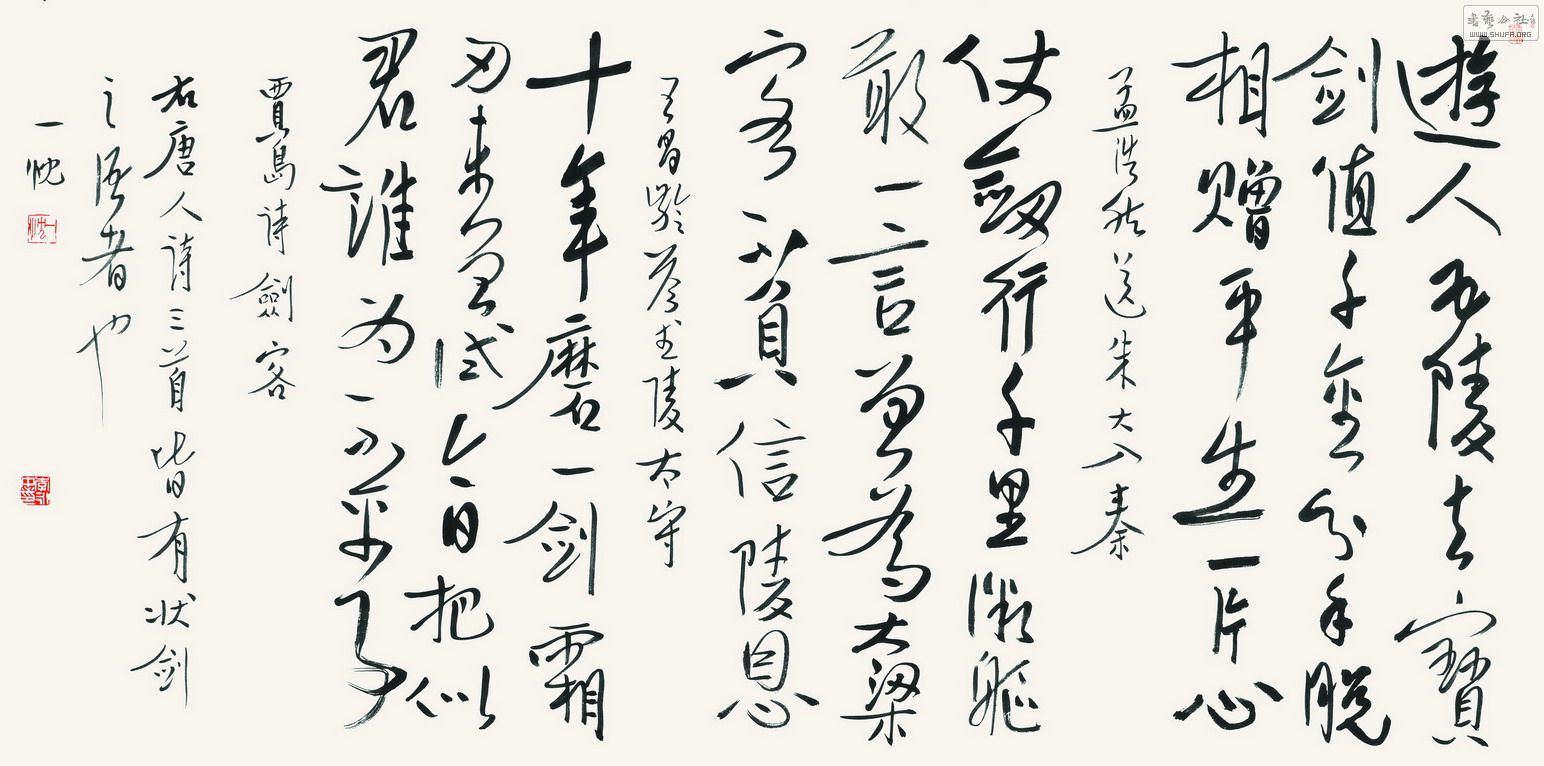 遊人五陵去寶
剑值千金分手脱
相赠平生一片心
孟浩然送朱大入秦
仗劔行千里微軀
敢一言曾為大梁
客不負信陵恩
王昌齡答武陵太守
十年磨一剑霜
刃未曾试今日把似
君誰为不平事
賈島诗劍客
右唐人诗三首皆有状剑
之语者也
一忱
書藝公社
WWW.SHUFA.ORG